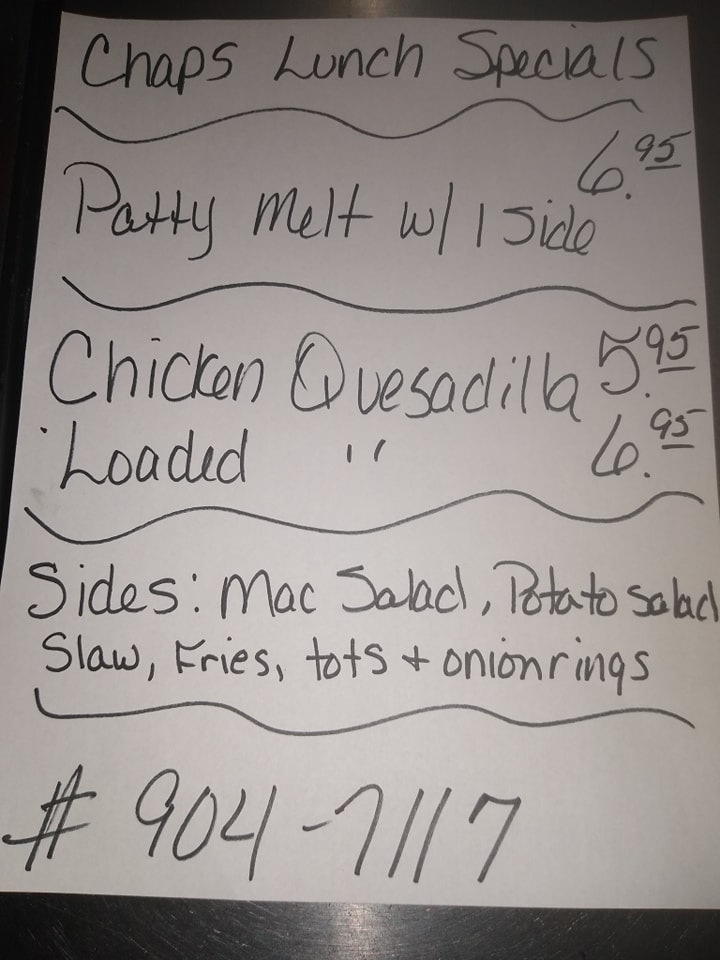 Chaps Lunch Specials
6.95
Patty Melt w/ 1 Side
Chicken Quesadilla 5.95
Loaded " 6.95
Sides: Mac Salad, Potato salad
Slaw, Fries, tots + onion rings
# 904-7117